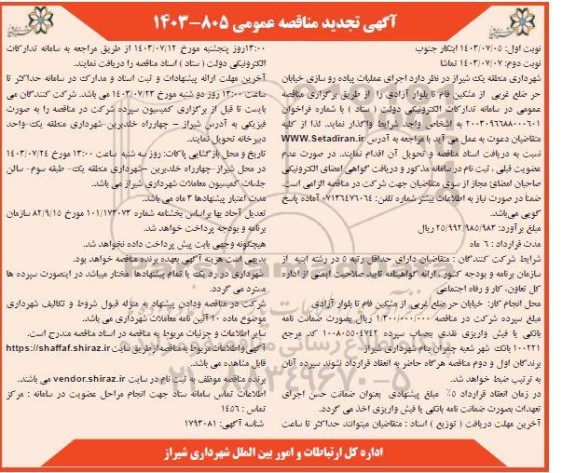 آگهی تجدید مناقصه عمومی ۸۰۵-۱۴۰۳
نوبت اول: ۱۴۰۳/۰۷/۰۵ ابتکار جنوب
نوبت دوم: ۱۴۰۳/۰۷/۰۷ تماشا
شهرداری منطقه یک شیراز در نظر دارد اجرای عملیات پیاده رو سازی خیابان
حر ضلع غربی از مشکین فام تا بلوار آزادی را از طریق برگزاری مناقصه
عمومی در سامانه تدارکات الکترونیکی دولت ( ستاد ) با شماره فراخوان
۲۰۰۳۰۹۶۶۸۸۰۰۰۶۰۱ به اشخاص واجد شرایط واگذار نماید. لذا از کلیه
متقاضیان دعوت به عمل می آید با مراجعه به آدرس WWW.Setadiran.ir
نسبت به دریافت اسناد مناقصه و تحویل آن اقدام نمایند. در صورت عدم
عضویت قبلی ، ثبت نام در سامانه مذکور و دریافت گواهی امضای الکترونیکی
صاحبان امضای مجاز از سوی متقاضیان جهت شرکت در مناقصه الزامی است.
ضمنا در صورت نیاز به اطلاعات بیشتر شماره تلفن: ۰۷۱۳۶۴۷۶۰۷۴ آماده پاسخ
گویی می‌باشد.
مبلغ برآورد: ۲۵/۹۹۲/۹۸۵/۹۸۳ ریال
مدت قرارداد : ۶ ماه
شرایط شرکت کنندگان : متقاضیان دارای حداقل رتبه ۵ در رشته ابنیه از
سازمان برنامه و بودجه کشور ، ارائه گواهینامه تایید صلاحیت ایمنی از اداره
کل تعاون، کار و رفاه اجتماعی
محل انجام کار: خیابان حر ضلع غربی از مشکین فام تا بلوار آزادی
مبلغ سپرده شرکت در مناقصه ۱/۳۰۰/۰۰۰/۰۰۰ ریال بصورت ضمانت نامه
بانکی یا فیش واریزی نقدی بحساب سپرده ۱۰۰۸۰۵۵۰۴۷۴۲ کد مرجع
۱۰۰۲۲۱ بانک شهر شعبه چمران بنام شهرداری شیراز
برندگان اول و دوم مناقصه هرگاه حاضر به انعقاد قرارداد نشوند سپرده آنان
به ترتیب ضبط خواهد شد.
در زمان انعقاد قرارداد ۵٪ مبلغ پیشنهادی بعنوان ضمانت حسن اجرای
تعهدات بصورت ضمانت نامه بانکی یا فیش واریزی اخذ می گردد.
آخرین مهلت دریافت ( توزیع ) اسناد : متقاضیان میتوانند حداکثر تا ساعت
۱۳:۰۰ روز پنجشنبه مورخ ۱۴۰۳/۰۷/۱۲ از طریق مراجعه به سامانه تدارکات
الکترونیکی دولت ( ستاد ) اسناد مناقصه را دریافت نمایند.
آخرین مهلت ارائه پیشنهادات و ثبت اسناد و مدارک در سامانه حداکثر تا
ساعت ۱۳:۰۰ روز دو شنبه مورخ ۱۴۰۳/۰۷/۲۳ می باشد. شرکت کنندگان می
بایست تا قبل از برگزاری کمیسیون سپرده شرکت در مناقصه را به صورت
فیزیکی به آدرس شیراز – چهارراه خلدبرین-شهرداری منطقه یک-واحد
دبیرخانه تحویل نمایند.
تاریخ و محل بازگشایی پاکات: روز سه شنبه ساعت ۱۳:۰۰ مورخ ۱۴۰۳/۰۷/۲۴
در محل شیراز-چهارراه خلدبرین –شهرداری منطقه یک- طبقه سوم- سالن
جلسات کمیسیون معاملات شهرداری شیراز می باشد.
مدت اعتبار پیشنهادها ۳ ماه می باشد.
تعدیل آحاد بها براساس بخشنامه شماره ۱۰۱/۱۷۳۰۷۳ مورخ ۸۲/۹/۱۵ سازمان
برنامه و بودجه پرداخت خواهد شد.
هیچگونه وجهی بابت پیش پرداخت داده نخواهد شد.
بدیهی است هزینه آگهی بعهده برنده مناقصه خواهد بود.
شهرداری در رد یک یا تمام پیشنهادها مختار میباشد در اینصورت سپرده ها
مسترد می گردد.
شرکت در مناقصه ودادن پیشنهاد به منزله قبول شروط و تکالیف شهرداری
موضوع ماده ۱۰ آئین نامه معاملات شهرداری می باشد.
سایر اطلاعات و جزئیات مربوط به مناقصه در اسناد مناقصه مندرج است.
آگهی واطلاعات مربوط به مناقصه ازطریق سایت https://shaffaf.shiraz.ir
قابل مشاهده می باشد.
برنده مناقصه موظف به ثبت نام در سایت vendor.shiraz.ir می باشند.
اطلاعات تماس سامانه ستاد جهت انجام مراحل عضویت در سامانه : مرکز
تماس : ۱۴۵۶
شناسه آگهی: ۱۷۹۳۰۸۱
اداره کل ارتباطات و امور بین الملل شهرداری شیراز